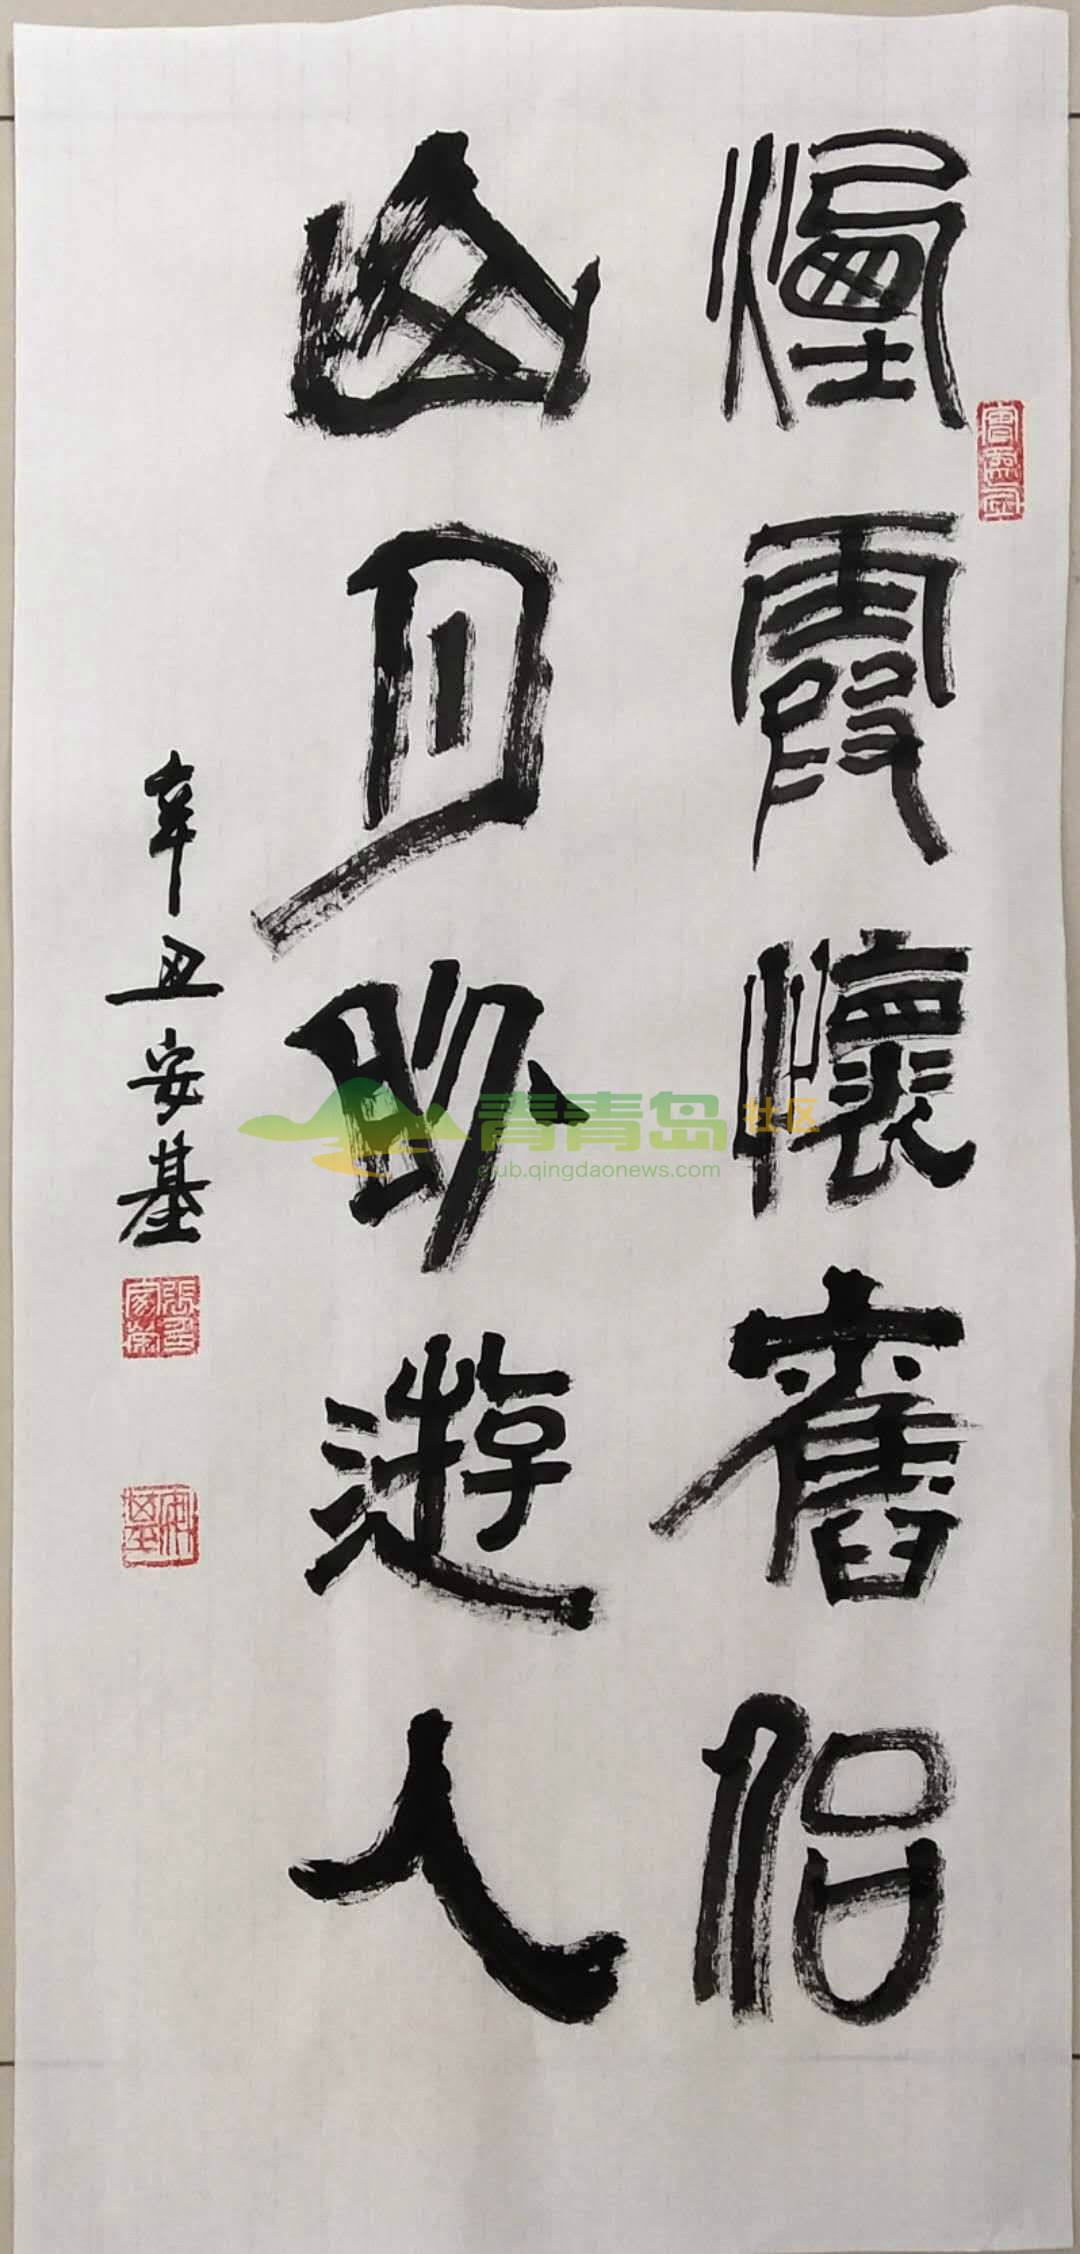 煙霞懷舊侶
山月遊人
辛丑安基
青青岛社区
club.qingdaonews.com